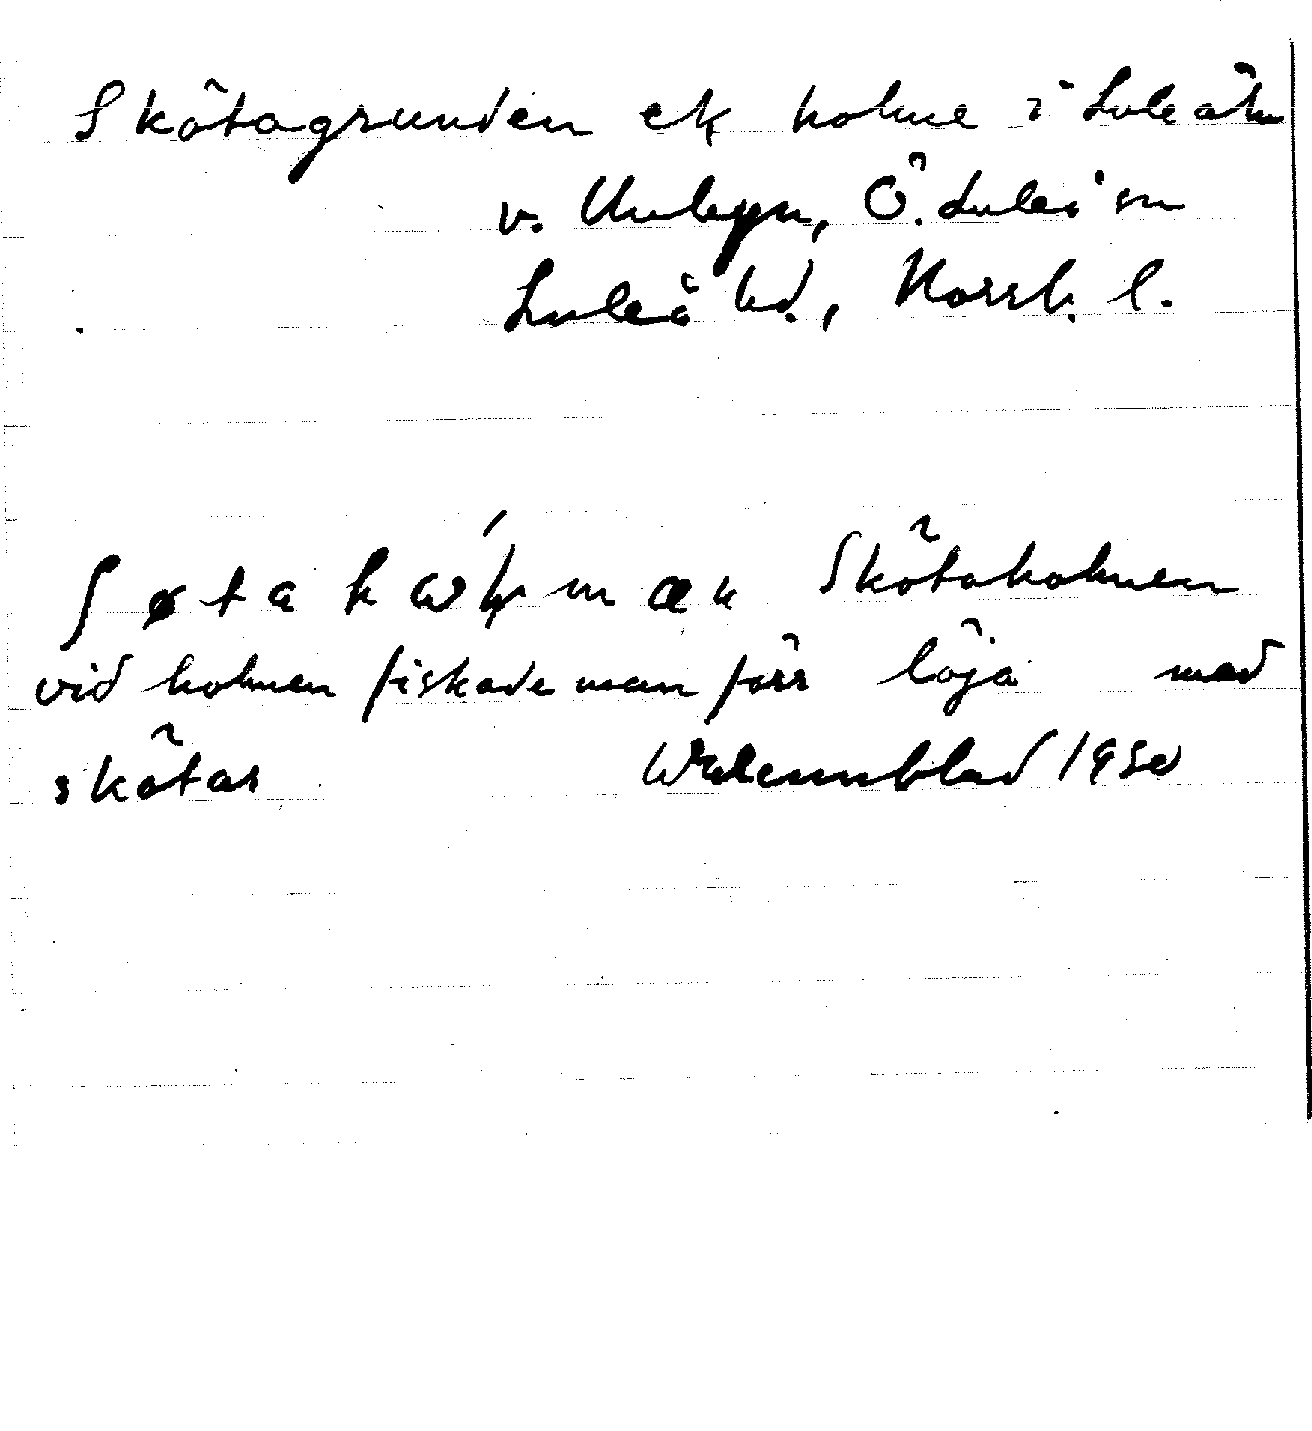 Skötagrunden ek holme i Lule älv
v. Unbyn, Ö. Luleå sn
Luleå hd., Norrb. l.
ʃøta hωl̥mæn Skötaholmen
vid holmen fiskade man förr löja med
skötar Wulennblad 1950